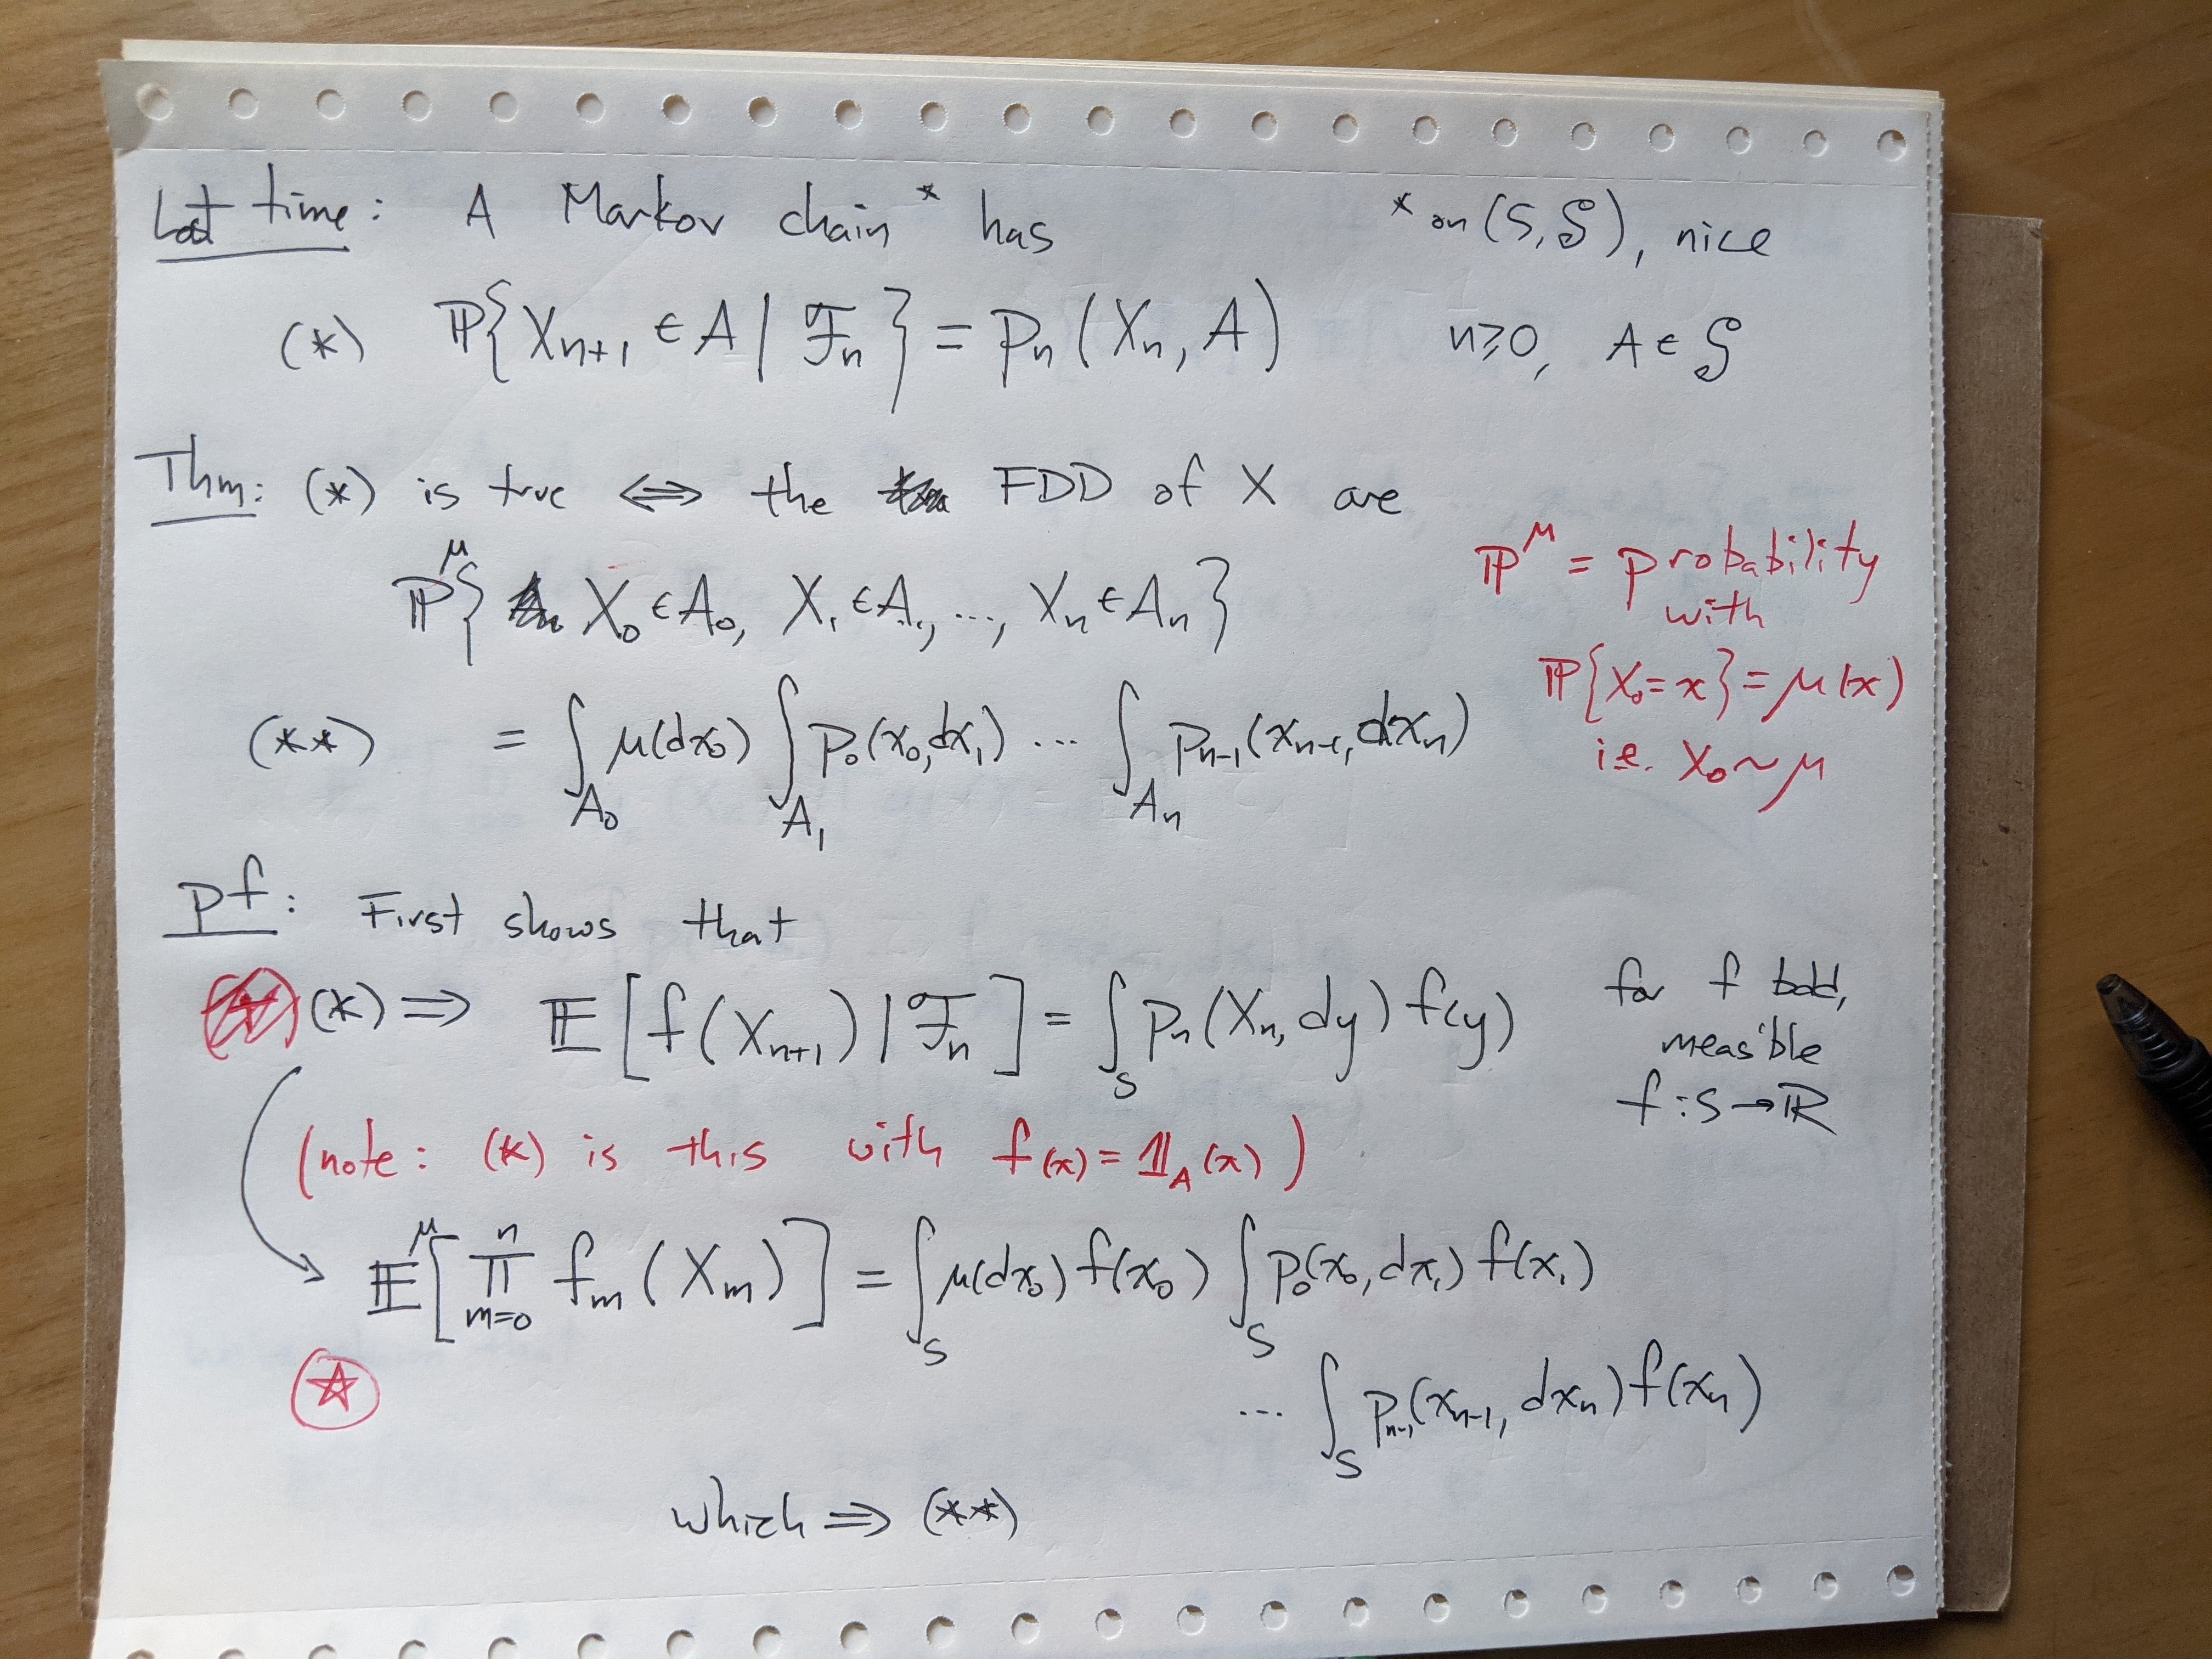 Last time: A Markov chain* has * on (S, 𝒮), nice
(*) ℙ{X_{n+1} ∈ A | ℱ_n} = p_n(X_n, A) n≥0, A ∈ 𝒮
Thm: (*) is true ⟺ the FDD of X are
ℙ^μ{ X_0 ∈ A_0, X_1 ∈ A_1, ..., X_n ∈ A_n}
(**) = ∫_{A_0} μ(dx_0) ∫_{A_1} p_0(x_0, dx_1) ... ∫_{A_n} p_{n-1}(x_{n-1}, dx_n)
ℙ^μ = probability
with
ℙ{X_0 = x} = μ(x)
i.e. X_0 ~ μ
Pf: First shows that
(*) ⟹ 𝔼[f(X_{n+1}) | ℱ_n] = ∫_S p_n(X_n, dy) f(y)
for f bdd,
meas'ble
f: S → ℝ
(note: (*) is this with f(x) = 𝟙_A(x))
𝔼^μ[∏_{m=0}^n f_m(X_m)] = ∫_S μ(dx_0) f(x_0) ∫_S p_0(x_0, dx_1) f(x_1)
☆
... ∫_S p_{n-1}(x_{n-1}, dx_n) f(x_n)
which ⟹ (**)